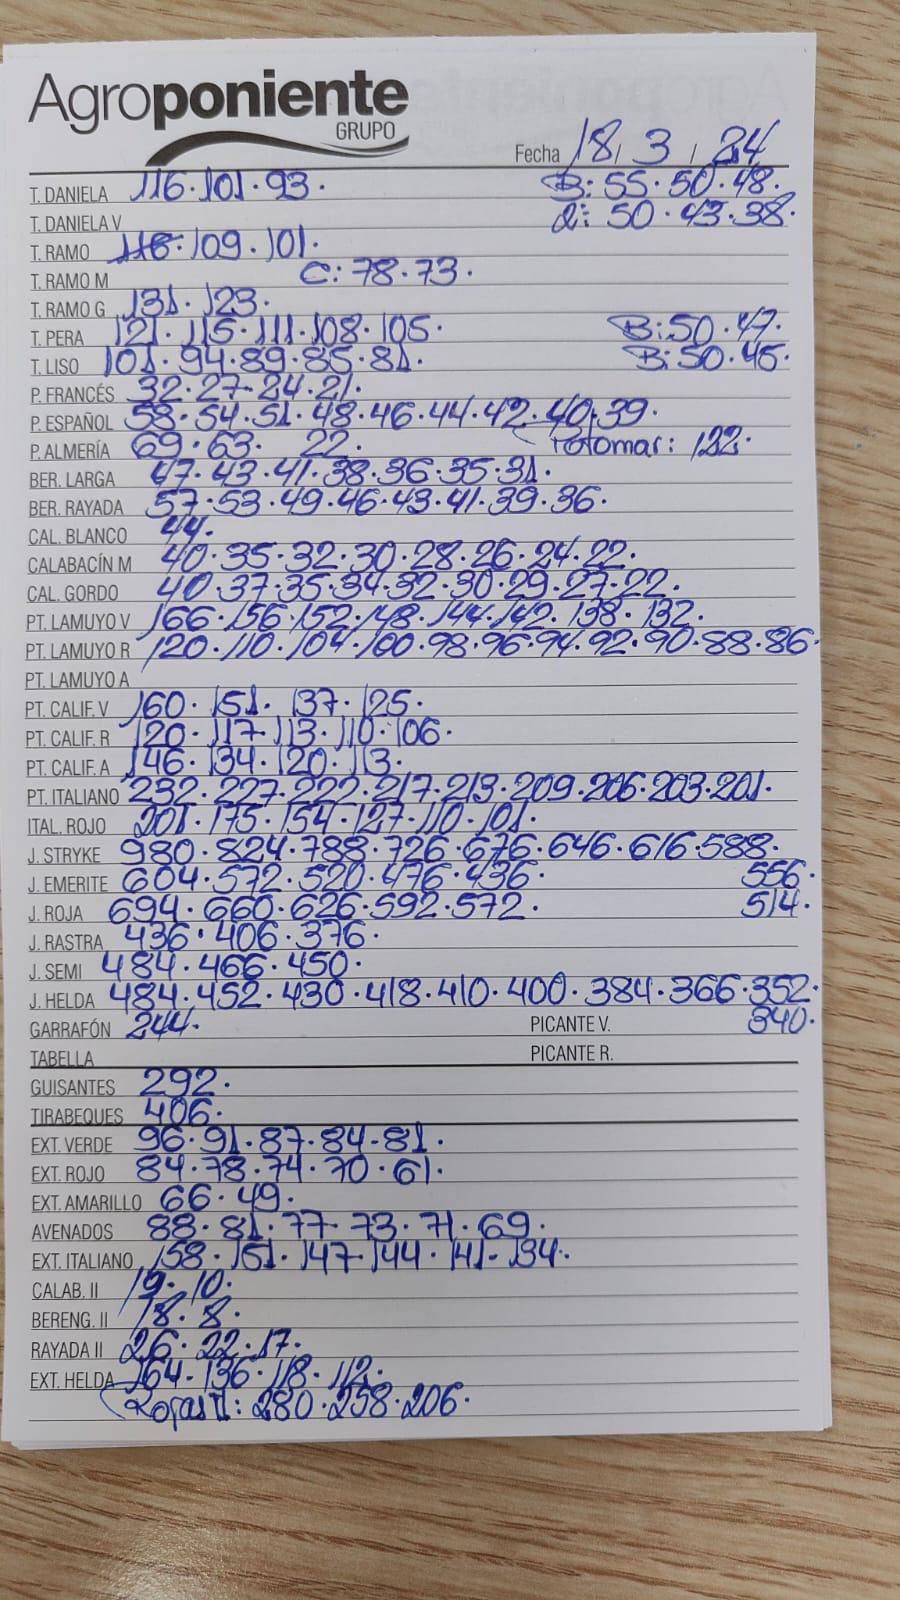 Agroponiente
GRUPO
Fecha 18 / 3 / 24
T. DANIELA 116 · 101 · 93 · B: 55 · 50 · 48 ·
T. DANIELA V 2: 50 · 43 · 38 ·
T. RAMO 116 · 109 · 101 ·
T. RAMO M C: 78 · 73 ·
T. RAMO G 131 · 123 ·
T. PERA 121 · 115 · 111 · 108 · 105 · B: 50 · 47 ·
T. LISO 101 · 94 · 89 · 85 · 81 · B: 50 · 45 ·
P. FRANCÉS 32 · 27 · 24 · 21 ·
P. ESPAÑOL 58 · 54 · 51 · 48 · 46 · 44 · 42 · 40 · 39 ·
P. ALMERÍA 69 · 63 · 22 · : 122 ·
BER. LARGA 47 · 43 · 41 · 38 · 36 · 35 · 31 ·
BER. RAYADA 57 · 53 · 49 · 46 · 43 · 41 · 39 · 36 ·
CAL. BLANCO 44 ·
CALABACÍN M 40 · 35 · 32 · 30 · 28 · 26 · 24 · 22 ·
CAL. GORDO 40 · 37 · 35 · 34 · 32 · 30 · 29 · 27 · 22 ·
PT. LAMUYO V 166 · 156 · 152 · 148 · 144 · 142 · 138 · 132 ·
PT. LAMUYO R 120 · 110 · 104 · 100 · 98 · 96 · 94 · 92 · 90 · 88 · 86 ·
PT. LAMUYO A
PT. CALIF. V 160 · 151 · 137 · 125 ·
PT. CALIF. R 120 · 117 · 113 · 110 · 106 ·
PT. CALIF. A 146 · 134 · 120 · 113 ·
PT. ITALIANO 232 · 227 · 222 · 217 · 213 · 209 · 206 · 203 · 201 ·
ITAL. ROJO 201 · 175 · 154 · 127 · 110 · 101 ·
J. STRYKE 980 · 824 · 788 · 726 · 676 · 646 · 616 · 588 ·
J. EMERITE 604 · 572 · 520 · 476 · 436 · 556 ·
J. ROJA 694 · 660 · 626 · 592 · 572 · 514 ·
J. RASTRA 436 · 406 · 376 ·
J. SEMI 484 · 466 · 450 ·
J. HELDA 484 · 452 · 430 · 418 · 410 · 400 · 384 · 366 · 352 ·
GARRAFÓN 244 · PICANTE V. 340 ·
TABELLA PICANTE R.
GUISANTES 292 ·
TIRABEQUES 406 ·
EXT. VERDE 96 · 91 · 87 · 84 · 81 ·
EXT. ROJO 84 · 78 · 74 · 70 · 61 ·
EXT. AMARILLO 66 · 49 ·
AVENADOS 88 · 81 · 77 · 73 · 71 · 69 ·
EXT. ITALIANO 158 · 151 · 147 · 144 · 141 · 134 ·
CALAB. II 19 · 10 ·
BERENG. II 18 · 8 ·
RAYADA II 26 · 22 · 17 ·
EXT. HELDA 164 · 136 · 118 · 112 ·
Rojas II: 280 · 258 · 206 ·